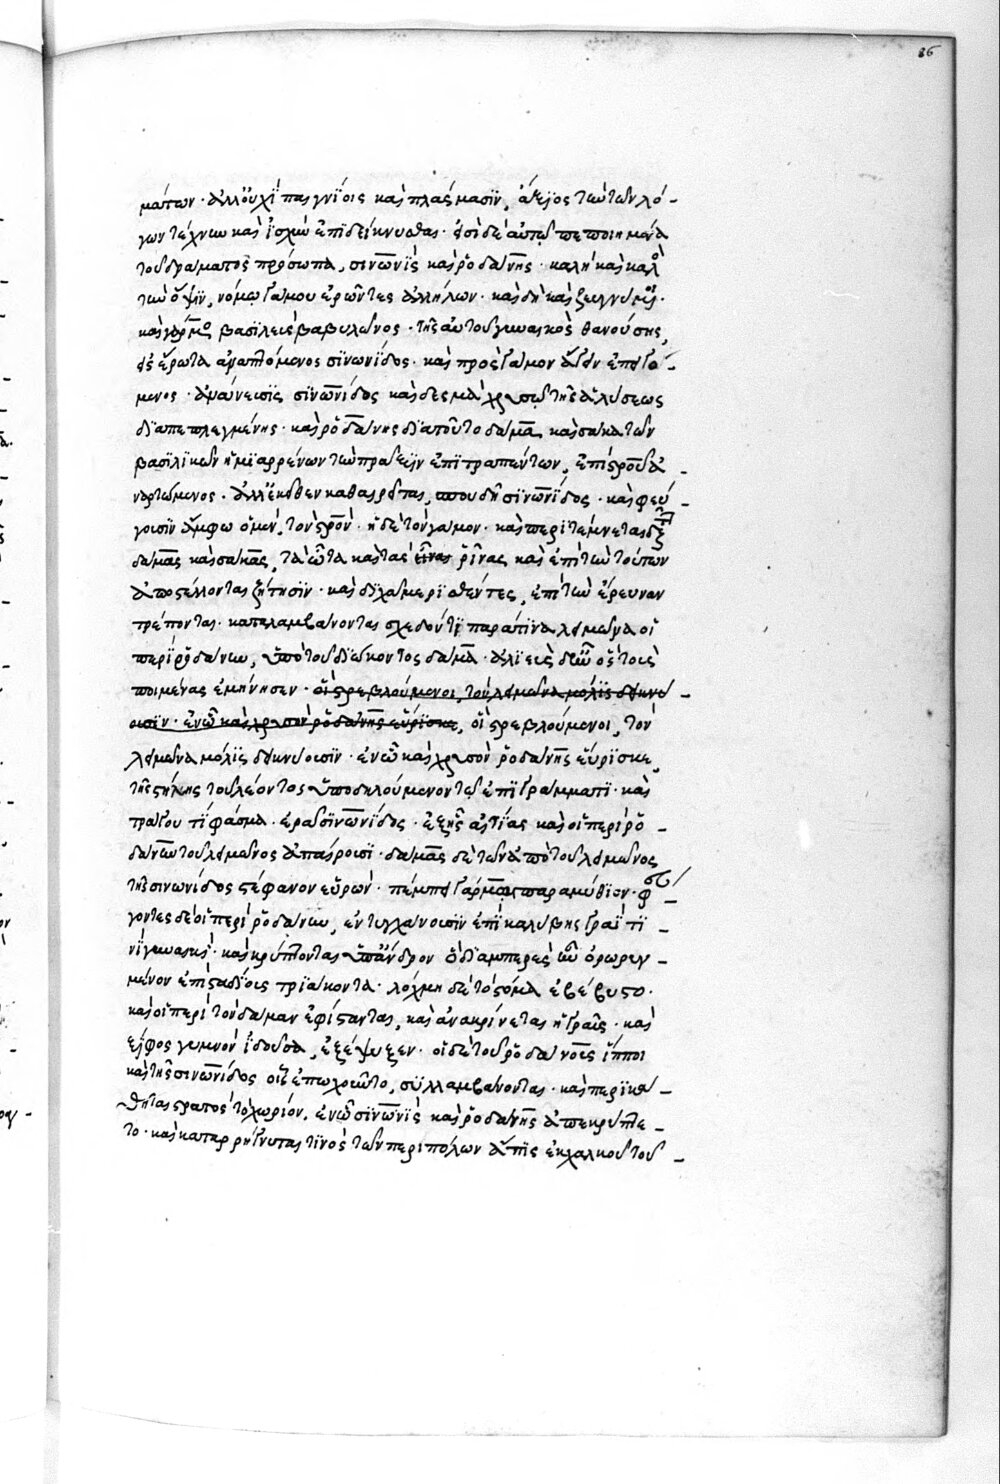 86
μάτων· ἀλλ' οὐχὶ παιγνίοις καὶ πλάσμασιν, ἄξιος τὴν τῶν λό-
γων τέχνην καὶ ἰσχὺν ἐπιδείκνυσθαι· εἰσὶ δὲ αὐτῷ πεποιημένα
τοῦ δράματος πρόσωπα, σινωνὶς καὶ ῥοδάνης· καλὴ καὶ καλὸς
τὴν ὄψιν, νόμῳ γάμου ἐρῶντες ἀλλήλων· καὶ δὴ καὶ ζευγνύμενοι·
καὶ γάρμος βασιλεὺς βαβυλῶνος· τῆς αὐτοῦ γυναικὸς θανούσης,
εἰς ἔρωτα ἀναπτόμενος σινωνίδος· καὶ πρὸς γάμον ἄγειν ἐπειγό-
μενος· ἀνάνευσις σινωνίδος καὶ δεσμὰ χρυσῷ τῆς ἁλύσεως
διαπεπλεγμένης· καὶ ῥοδάνης διὰ τοῦτο δάμα καὶ σάκα τῶν
βασιλικῶν ἡμιαρρένων τὴν πρᾶξιν ἐπιτραπέντων, ἐπὶ σταυροῦ ἀ-
ναρτώμενος· ἀλλ' ἐκεῖθεν καθαιρεῖται, σπουδῇ σινωνίδος· καὶ φεύ-
γουσιν ἄμφω ὁ μὲν, τὸν σταυρόν· ἡ δὲ τὸν γάμον· καὶ περιτέμνεται δὲ
δάμας καὶ σάκας, τὰ ὦτα καὶ τὰς ῥῖνας ῥῖνας καὶ ἐπὶ τὴν τούτων
ἀποστέλλονται ζήτησιν· καὶ δίχα μερισθέντες, ἐπὶ τὴν ἔρευναν
τρέπονται· καταλαμβάνονται σχεδόν τι παρά τινα λειμῶνα οἱ
περὶ ῥοδάνην, ὑπὸ τοῦ διώκοντος δάμα· ἁλιεὺς δὲ ἦν ὃς τοὺς
ποιμένας ἐμήνυσεν· οἳ στρεβλούμενοι, τὸν λειμῶνα μόλις δεικνύ-
ουσιν· ἐν ᾧ καὶ χρυσὸν ῥοδάνης εὕρισκε, οἳ στρεβλούμενοι, τὸν
λειμῶνα μόλις δεικνύουσιν· ἐν ᾧ καὶ χρυσὸν ῥοδάνης εὕρισκε,
τῆς στήλης τοῦ λέοντος ὑποδηλούμενον τῷ ἐπιγράμματι· καὶ
τράγου τι φάσμα· ἐρᾷ σινωνίδος· ἐξ ἧς αἰτίας καὶ οἱ περὶ ῥο-
δάνην τοῦ λειμῶνος ἀπαίρουσι· δάμας δὲ τῶν ἀπὸ τοῦ λειμῶνος
τῆς σινωνίδος στέφανον εὑρών· πέμπει γάρμῳ παραμύθιον· φεύ-
γοντες δὲ οἱ περὶ ῥοδάνην, ἐντυγχάνουσιν ἐπὶ καλύβης γραΐ τι-
νὶ γυναικί· καὶ κρύπτονται ὑπ' ἄντρον ὃ διαμπερὲς ἦν ὀρωρυγ-
μένον ἐπὶ σταδίοις τριάκοντα· λόχμῃ δὲ τὸ στόμα ἐβέβυστο·
καὶ οἱ περὶ τὸν δάμαν ἐφίστανται, καὶ ἀνακρίνεται ἡ γραῦς· καὶ
ξίφος γυμνὸν ἰδοῦσα, ἐξέψυξεν· οἱ δὲ τοῦ ῥοδάνους ἵπποι
καὶ τῆς σινωνίδος οἷς ἐπωχοῦντο, συλλαμβάνονται· καὶ περικα-
θῆται στρατὸς τὸ χωρίον, ἐν ᾧ σινωνὶς καὶ ῥοδάνης ἀπεκρύπτε-
το· καὶ καταρρήγνυταί τινος τῶν περιπόλων ἀσπὶς ἐκ χαλκοῦ τοῦ-